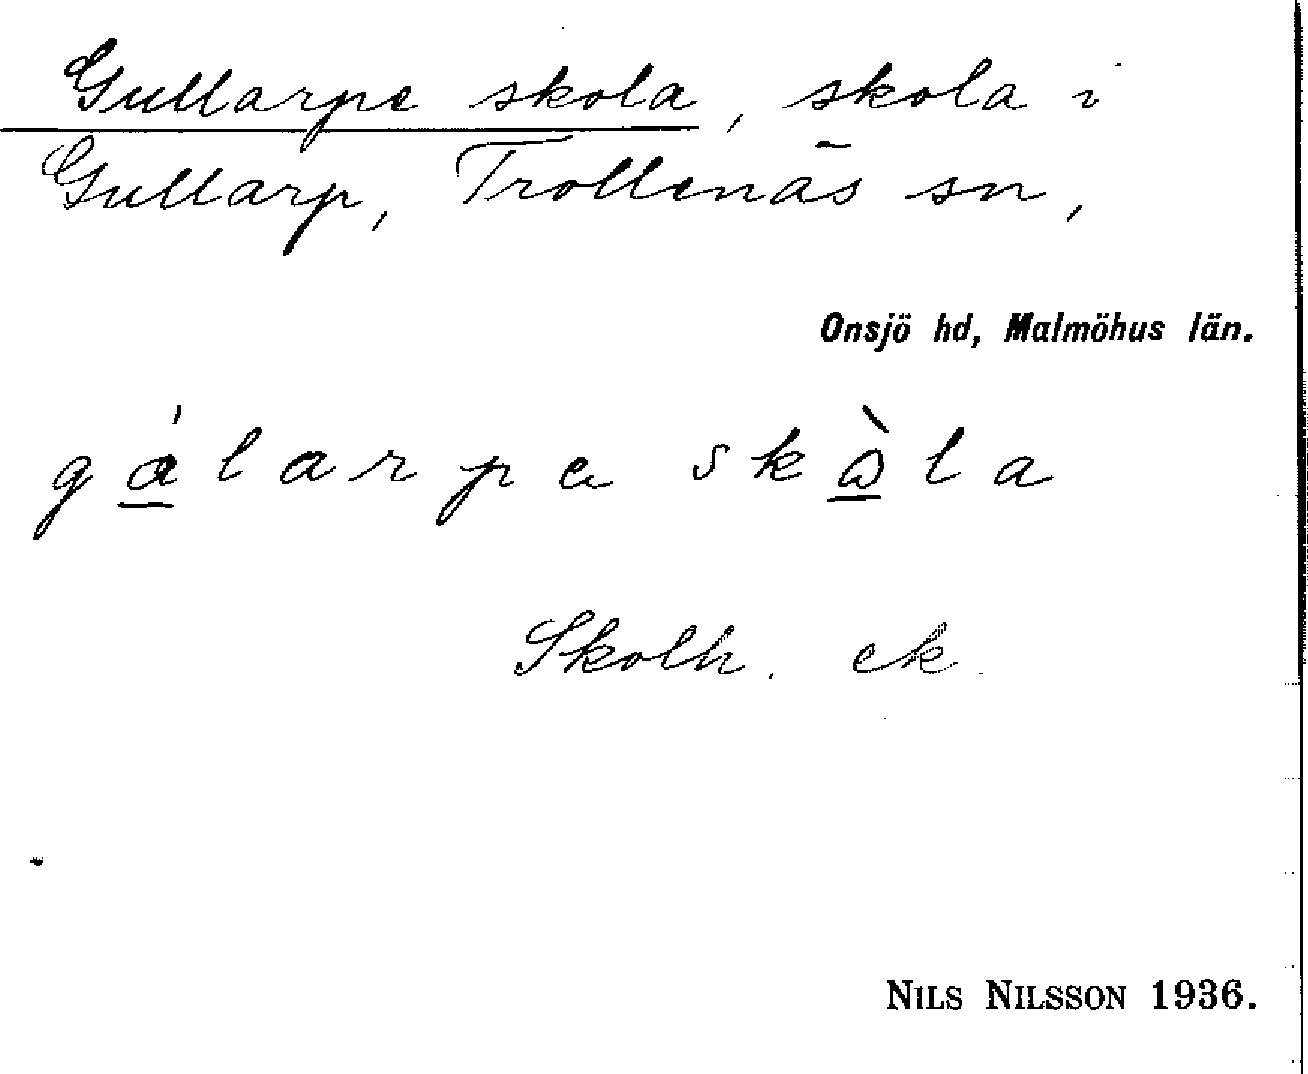 Gullarpe skola, skola i
Gullarp, Trollenäs sn,
Onsjö hd, Malmöhus län.
gálarpe skòla
Skolh. ek.
NILS NILSSON 1936.